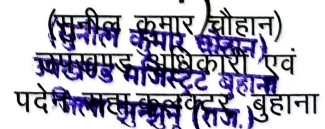 (सुनील कुमार चौहान)
उपखण्ड अधिकारी एवं
पदेन सहा. कलक्टर, बुहाना
(सुनील कुमार चौहान)
उपखण्ड मजिस्ट्रेट बुहाना
जिला झुन्झुनू (राज.)